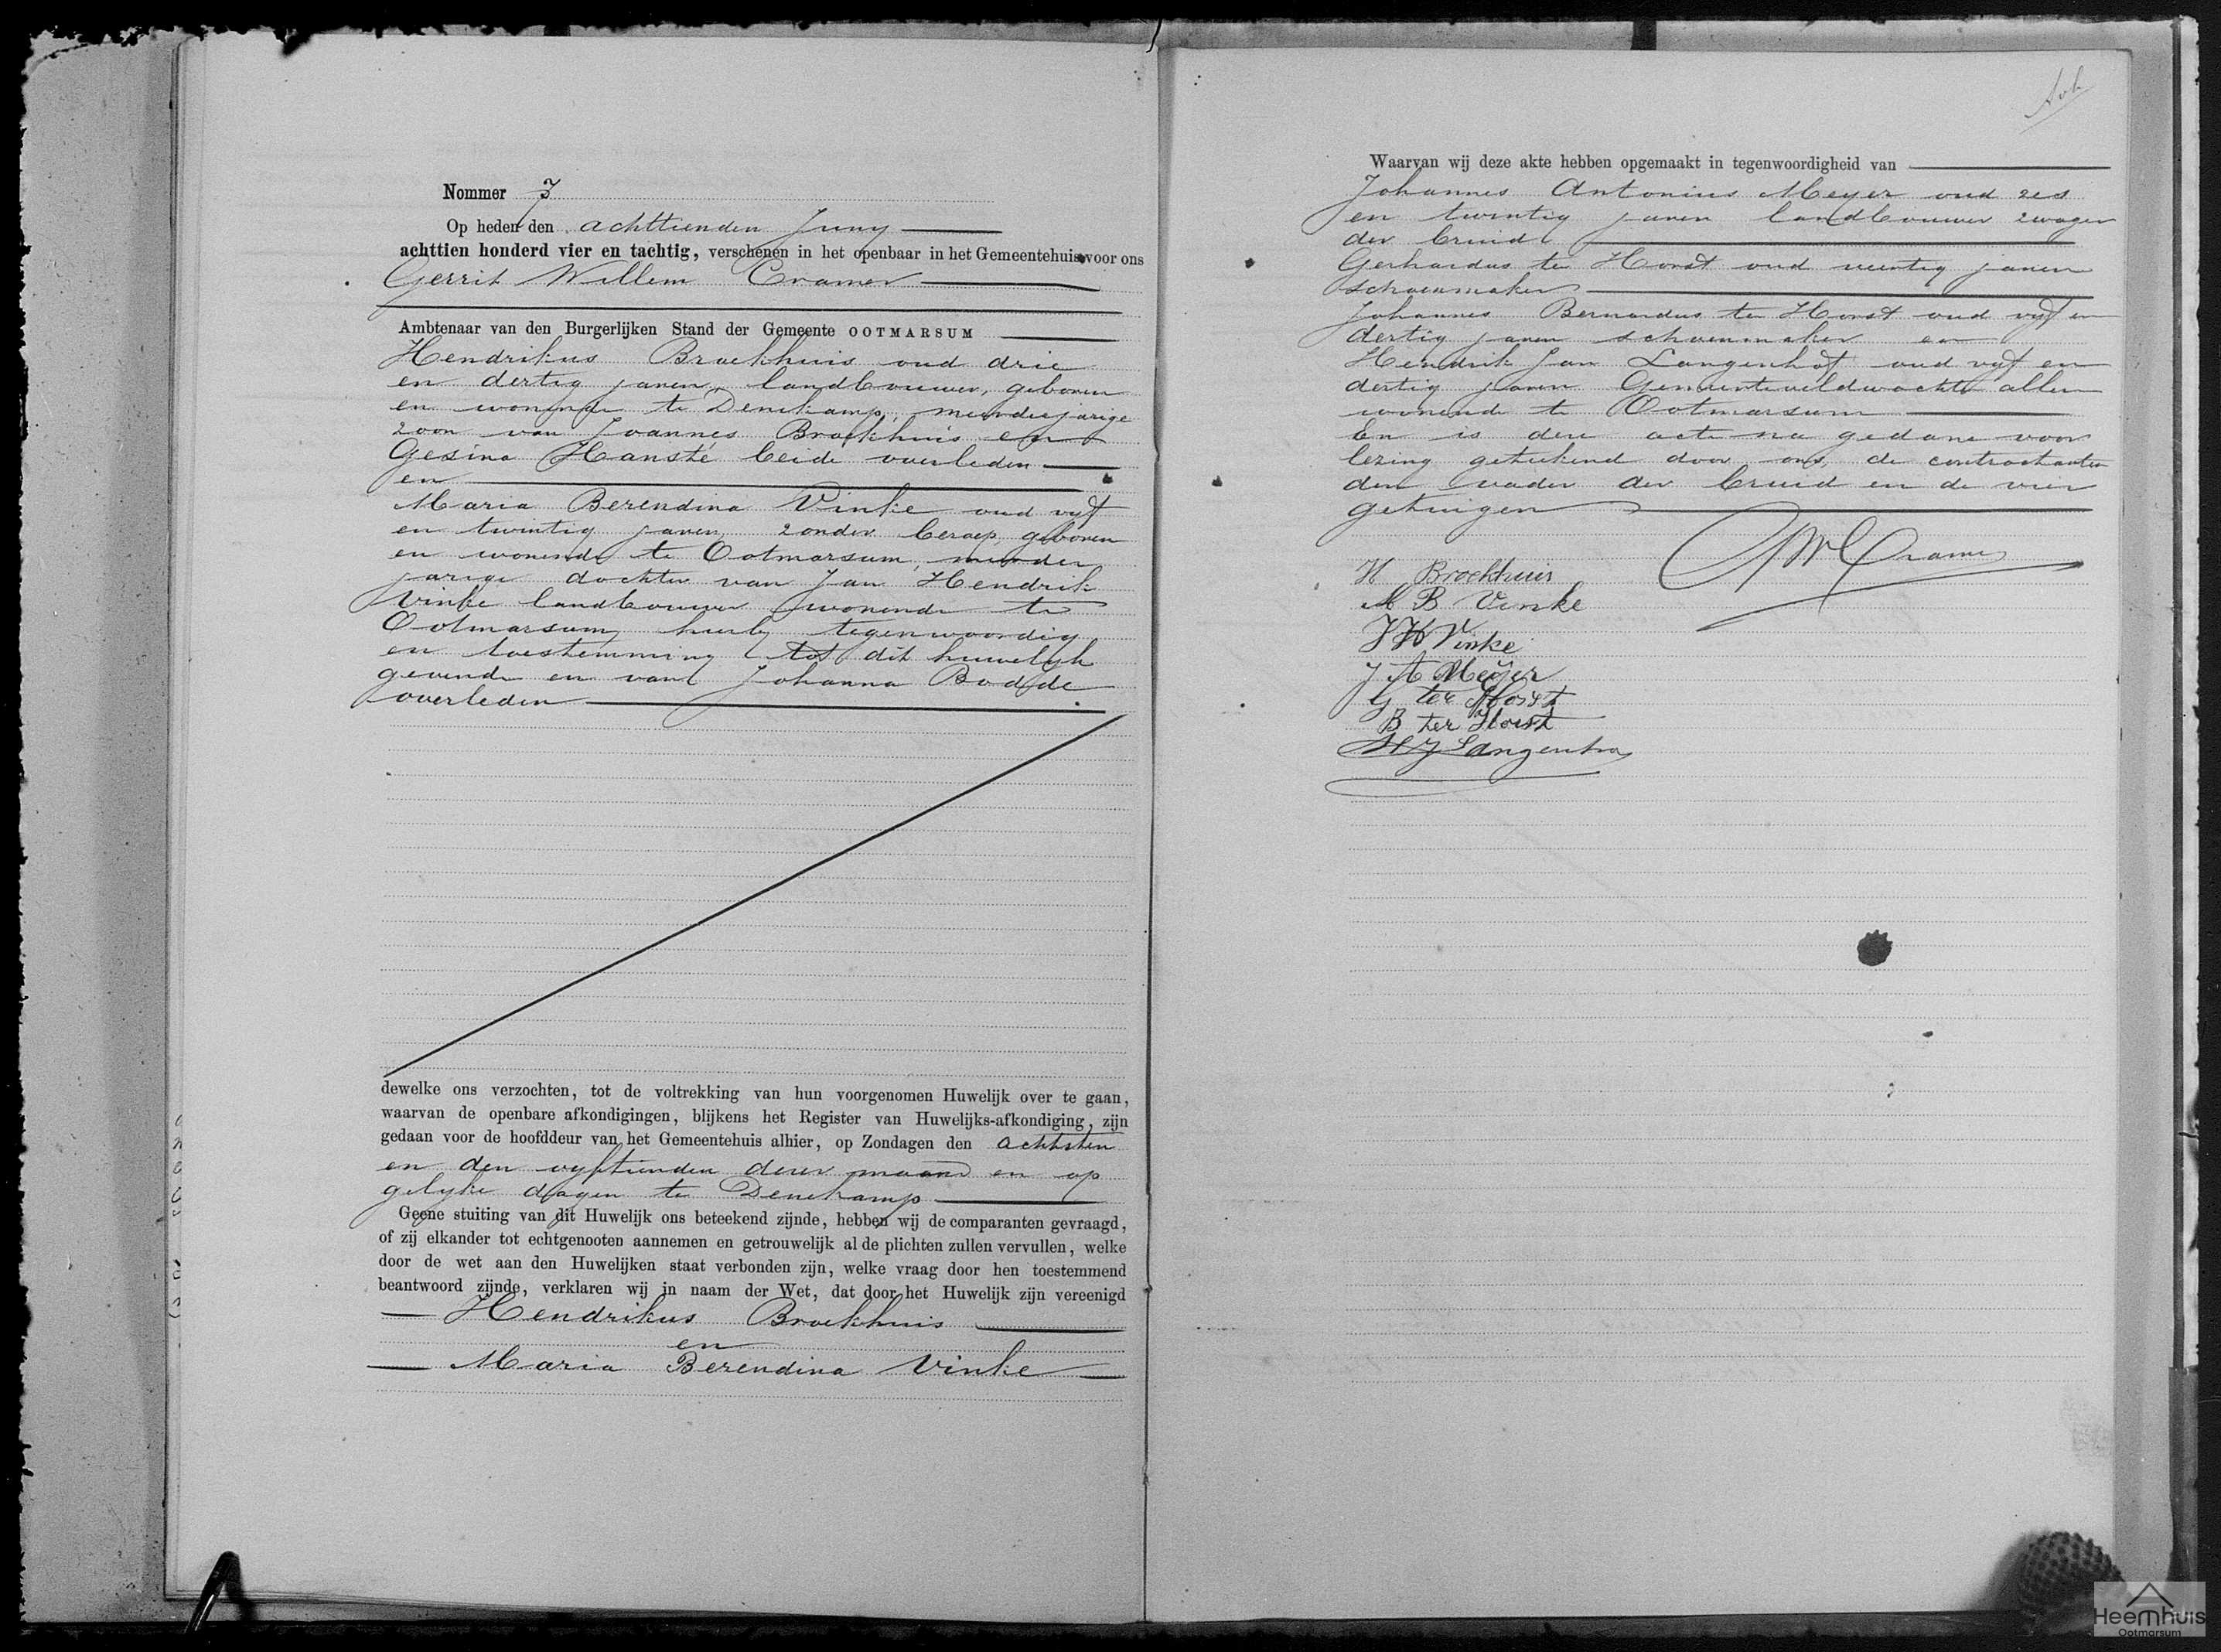 Nommer 7
Op heden den achttienden Juny
achttien honderd vier en tachtig, verschenen in het openbaar in het Gemeentehuis voor ons
Gerrit Willem Cramer
Ambtenaar van den Burgerlijken Stand der Gemeente OOTMARSUM
Hendrikus Broekhuis oud drie
en dertig jaren, landbouwer, geboren
en wonende te Denekamp, meerderjarige
zoon van Joannes Broekhuis en
Gesina Hansté beide overleden
en
Maria Berendina Vinke oud vyf
en twintig jaren, zonder beroep, geboren
en wonende te Ootmarsum, meerder
jarige dochter van Jan Hendrik
Vinke landbouwer wonende te
Ootmarsum, hierby tegenwoordig
en toestemming tot dit huwelyk
gevende en van Johanna Bodde
overleden
dewelke ons verzochten, tot de voltrekking van hun voorgenomen Huwelijk over te gaan,
waarvan de openbare afkondigingen, blijkens het Register van Huwelijks-afkondiging, zijn
gedaan voor de hoofddeur van het Gemeentehuis alhier, op Zondagen den achtsten
en den vyftienden dezer maand en op
gelyke dagen te Denekamp
Geene stuiting van dit Huwelijk ons beteekend zijnde, hebben wij de comparanten gevraagd,
of zij elkander tot echtgenooten aannemen en getrouwelijk al de plichten zullen vervullen, welke
door de wet aan den Huwelijken staat verbonden zijn, welke vraag door hen toestemmend
beantwoord zijnde, verklaren wij in naam der Wet, dat door het Huwelijk zijn vereenigd
Hendrikus Broekhuis
en
Maria Berendina Vinke
Waarvan wij deze akte hebben opgemaakt in tegenwoordigheid van
Johannes Antonius Meyer oud zes
en twintig jaren landbouwer zwager
der bruid
Gerhardus ter Horst oud veertig jaren
schoenmaker
Johannes Bernardus ter Horst oud vyf en
dertig jaren schoenmaker en
Hendrik Jan Langenhof oud vyf en
dertig jaren Gemeenteveldwachter allen
wonende te Ootmarsum
En is deze acte na gedane voor
lezing geteekend door ons, de contractanten
den vader der bruid en de vier
getuigen
GW Cramer
H Broekhuis
M B Vinke
J H Vinke
J A Meÿer
G ter Horst
B ter Horst
H J Langenhof
Heemhuis
Ootmarsum